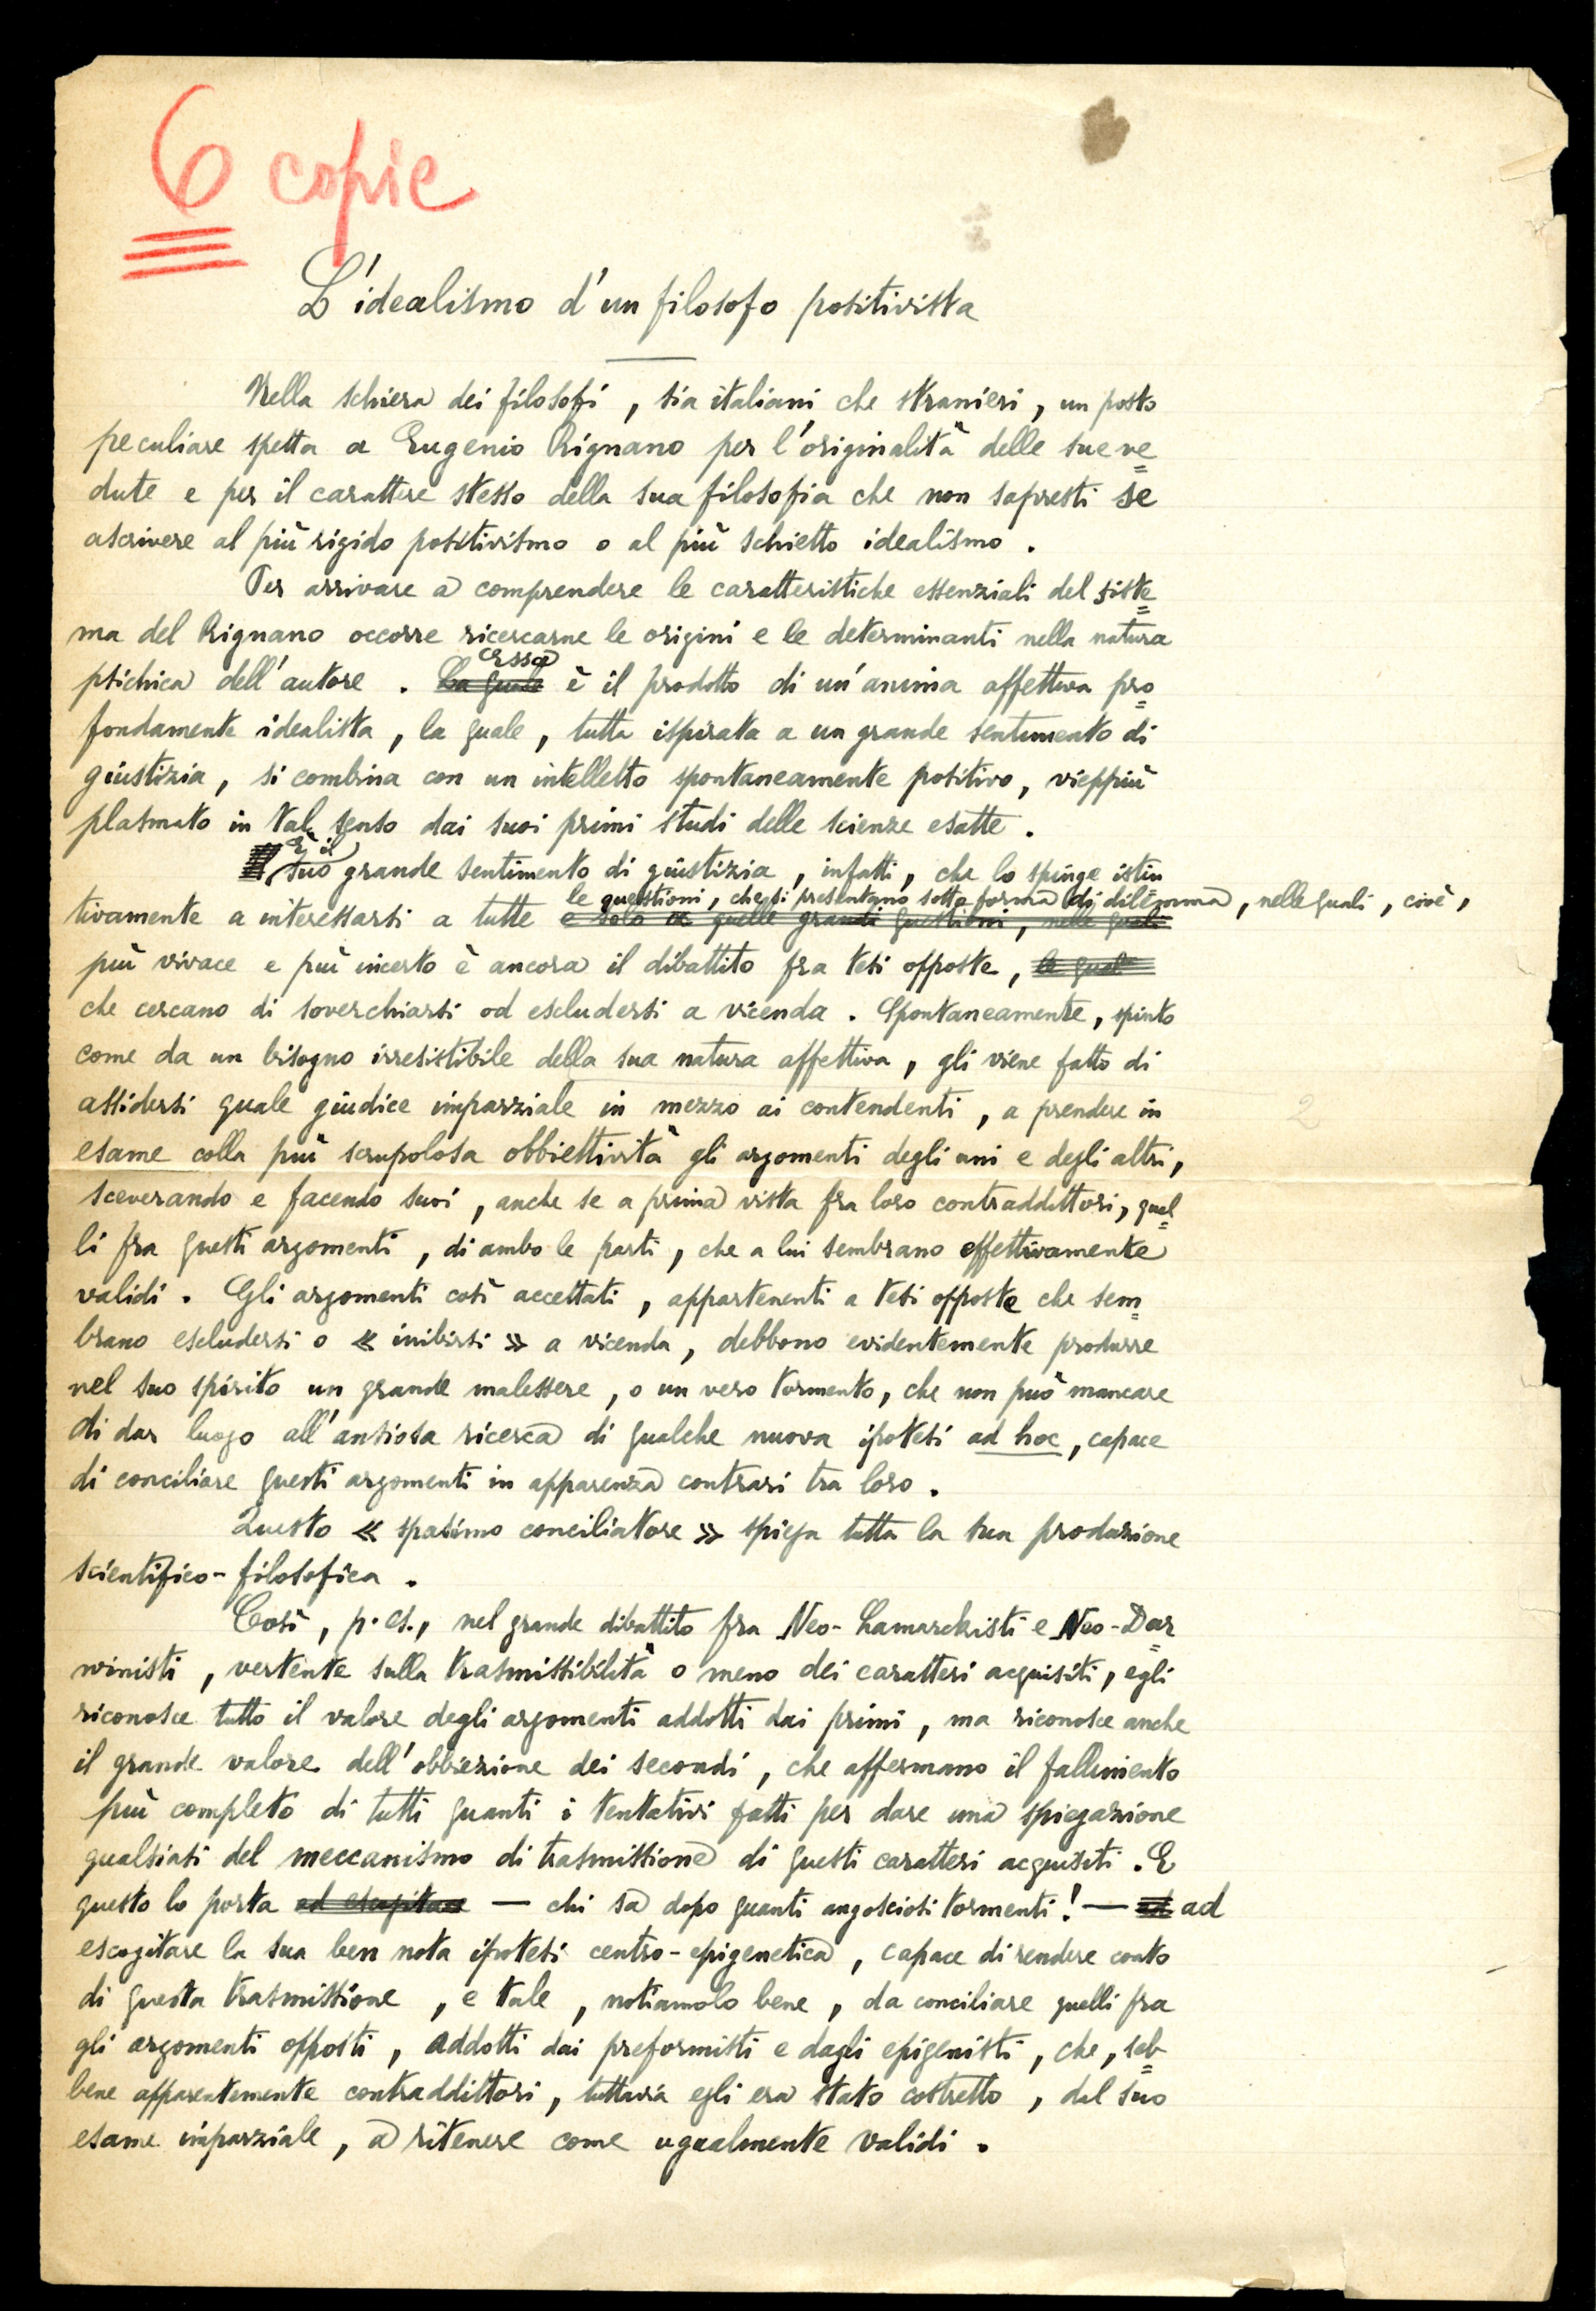 6 copie
L'idealismo d'un filosofo positivista
Nella schiera dei filosofi, sia italiani che stranieri, un posto
peculiare spetta a Eugenio Rignano per l'originalità delle sue ve=
dute e per il carattere stesso della sua filosofia che non sapresti se
ascrivere al più rigido positivismo o al più schietto idealismo.
Per arrivare a comprendere le caratteristiche essenziali del siste=
ma del Rignano occorre ricercarne le origini e le determinanti nella natura
Essa
psichica dell'autore. La quale è il prodotto di un'anima affettiva pro=
fondamente idealista, la quale, tutta ispirata a un grande sentimento di
giustizia, si combina con un intelletto spontaneamente positivo, vieppiù
plasmato in tal senso dai suoi primi studi delle scienze esatte.
È il
suo grande sentimento di giustizia, infatti, che lo spinge istin=
le questioni, che si presentano sotto forma di dilemma, nelle quali, cioè,
tivamente a interessarsi a tutte e solo a quelle grandi questioni, nelle quali
più vivace e più incerto è ancora il dibattito fra tesi opposte, le quali
che cercano di soverchiarsi od escludersi a vicenda. Spontaneamente, spinto
come da un bisogno irresistibile della sua natura affettiva, gli viene fatto di
assidersi quale giudice imparziale in mezzo ai contendenti, a prendere in
2
esame colla più scrupolosa obbiettività gli argomenti degli uni e degli altri,
sceverando e facendo suoi, anche se a prima vista fra loro contraddittori, quel=
li fra questi argomenti, di ambo le parti, che a lui sembrano effettivamente
validi. Gli argomenti così accettati, appartenenti a tesi opposte che sem=
brano escludersi o « inibirsi » a vicenda, debbono evidentemente produrre
nel suo spirito un grande malessere, o un vero tormento, che non può mancare
di dar luogo all'ansiosa ricerca di qualche nuova ipotesi ad hoc, capace
di conciliare questi argomenti in apparenza contrari tra loro.
Questo « spasimo conciliatore » spiega tutta la sua produzione
scientifico-filosofica.
Così, p. es., nel grande dibattito fra Neo-Lamarckisti e Neo-Dar=
winisti, vertente sulla trasmissibilità o meno dei caratteri acquisiti, egli
riconosce tutto il valore degli argomenti addotti dai primi, ma riconosce anche
il grande valore dell'obbiezione dei secondi, che affermano il fallimento
più completo di tutti quanti i tentativi fatti per dare una spiegazione
qualsiasi del meccanismo di trasmissione di questi caratteri acquisiti. E
questo lo porta ad escogitare — chi sa dopo quanti angosciosi tormenti! — ad ad
escogitare la sua ben nota ipotesi centro-epigenetica, capace di rendere conto
di questa trasmissione, e tale, notiamolo bene, da conciliare quelli fra
gli argomenti opposti, addotti dai preformisti e dagli epigenisti, che, seb=
bene apparentemente contraddittori, tuttavia egli era stato costretto, dal suo
esame imparziale, a ritenere come ugualmente validi.